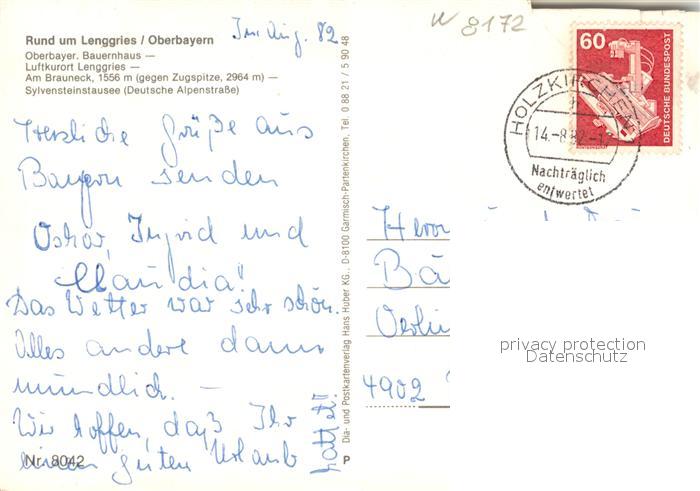 Rund um Lenggries / Oberbayern
Im Aug. 82
Oberbayer. Bauernhaus —
Luftkurort Lenggries —
Am Brauneck, 1556 m (gegen Zugspitze, 2964 m) —
Sylvensteinstausee (Deutsche Alpenstraße)
Herzliche Grüße aus
Bayern senden
Oskar, Ingrid und
Claudia!
Das Wetter war sehr schön.
Alles andere dann
mündlich. —
Wir hoffen, daß Ihr
einen guten Urlaub
hattet!!
Nr. 8042
P
Dia- und Postkartenverlag Hans Huber KG., D-8100 Garmisch-Partenkirchen, Tel. 0 88 21 / 5 90 48
W 8172
60
DEUTSCHE BUNDESPOST
HOLZKIRCHEN
14.-8.82-17
Nachträglich
entwertet
4902
privacy protection
Datenschutz